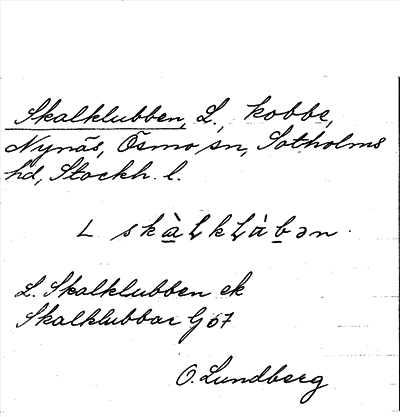 Skalklubben, L., kobbe,
Nynäs, Ösmo sn, Sotholms
hd, Stockh. l.
L skàlklàbən.
L. Skalklubben ek
Skalklubbar G 67
O. Lundberg